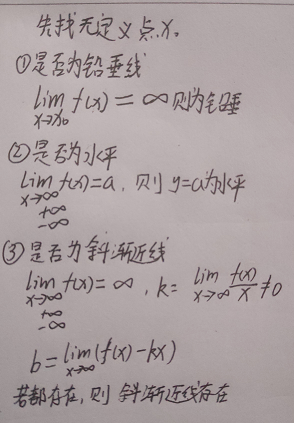 先找无定义点x₀
①是否为铅垂线
lim f(x) = ∞ 则为铅垂
x→x₀
②是否为水平
lim f(x)=a, 则 y=a为水平
x→∞
+∞
-∞
③是否为斜渐近线
lim f(x)=∞, k= lim f(x)/x ≠0
x→∞ x→∞
+∞
-∞
b=lim(f(x)-kx)
x→∞
若都存在,则斜渐近线存在